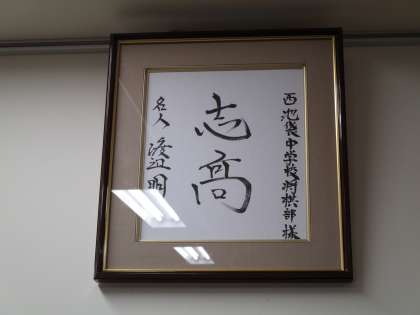 西池袋中学校将棋部様
志高
名人 渡辺明